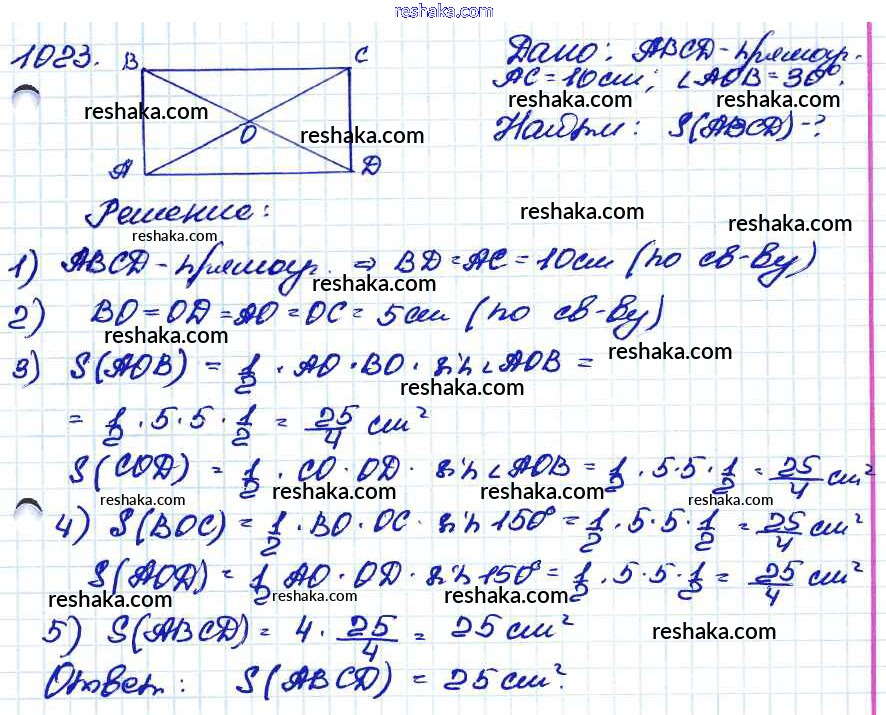 reshaka.com
1023. B C Дано: ABCD-прямоуг.
AC = 10см; ∠AOB = 30°.
reshaka.com reshaka.com reshaka.com
O reshaka.com Найти: S(ABCD)-?
A D
Решение: reshaka.com reshaka.com
reshaka.com
1) ABCD-прямоуг. ⇒ BD = AC = 10см (по св-ву)
reshaka.com
2) BO = OD = AO = OC = 5см (по св-ву)
reshaka.com reshaka.com
3) S(AOB) = 1/2 · AO · BO · sin∠AOB =
reshaka.com
= 1/2 · 5 · 5 · 1/2 = 25/4 см²
S(COD) = 1/2 · CO · OD · sin∠AOB = 1/2 · 5·5 · 1/2 = 25/4 см²
reshaka.com reshaka.com reshaka.com reshaka.com
4) S(BOC) = 1/2 · BO · OC · sin150° = 1/2 · 5·5 · 1/2 = 25/4 см²
S(AOD) = 1/2 AO · OD · sin150° = 1/2 · 5·5 · 1/2 = 25/4 см²
reshaka.com reshaka.com reshaka.com
5) S(ABCD) = 4 · 25/4 = 25 см²
reshaka.com
Ответ: S(ABCD) = 25 см².